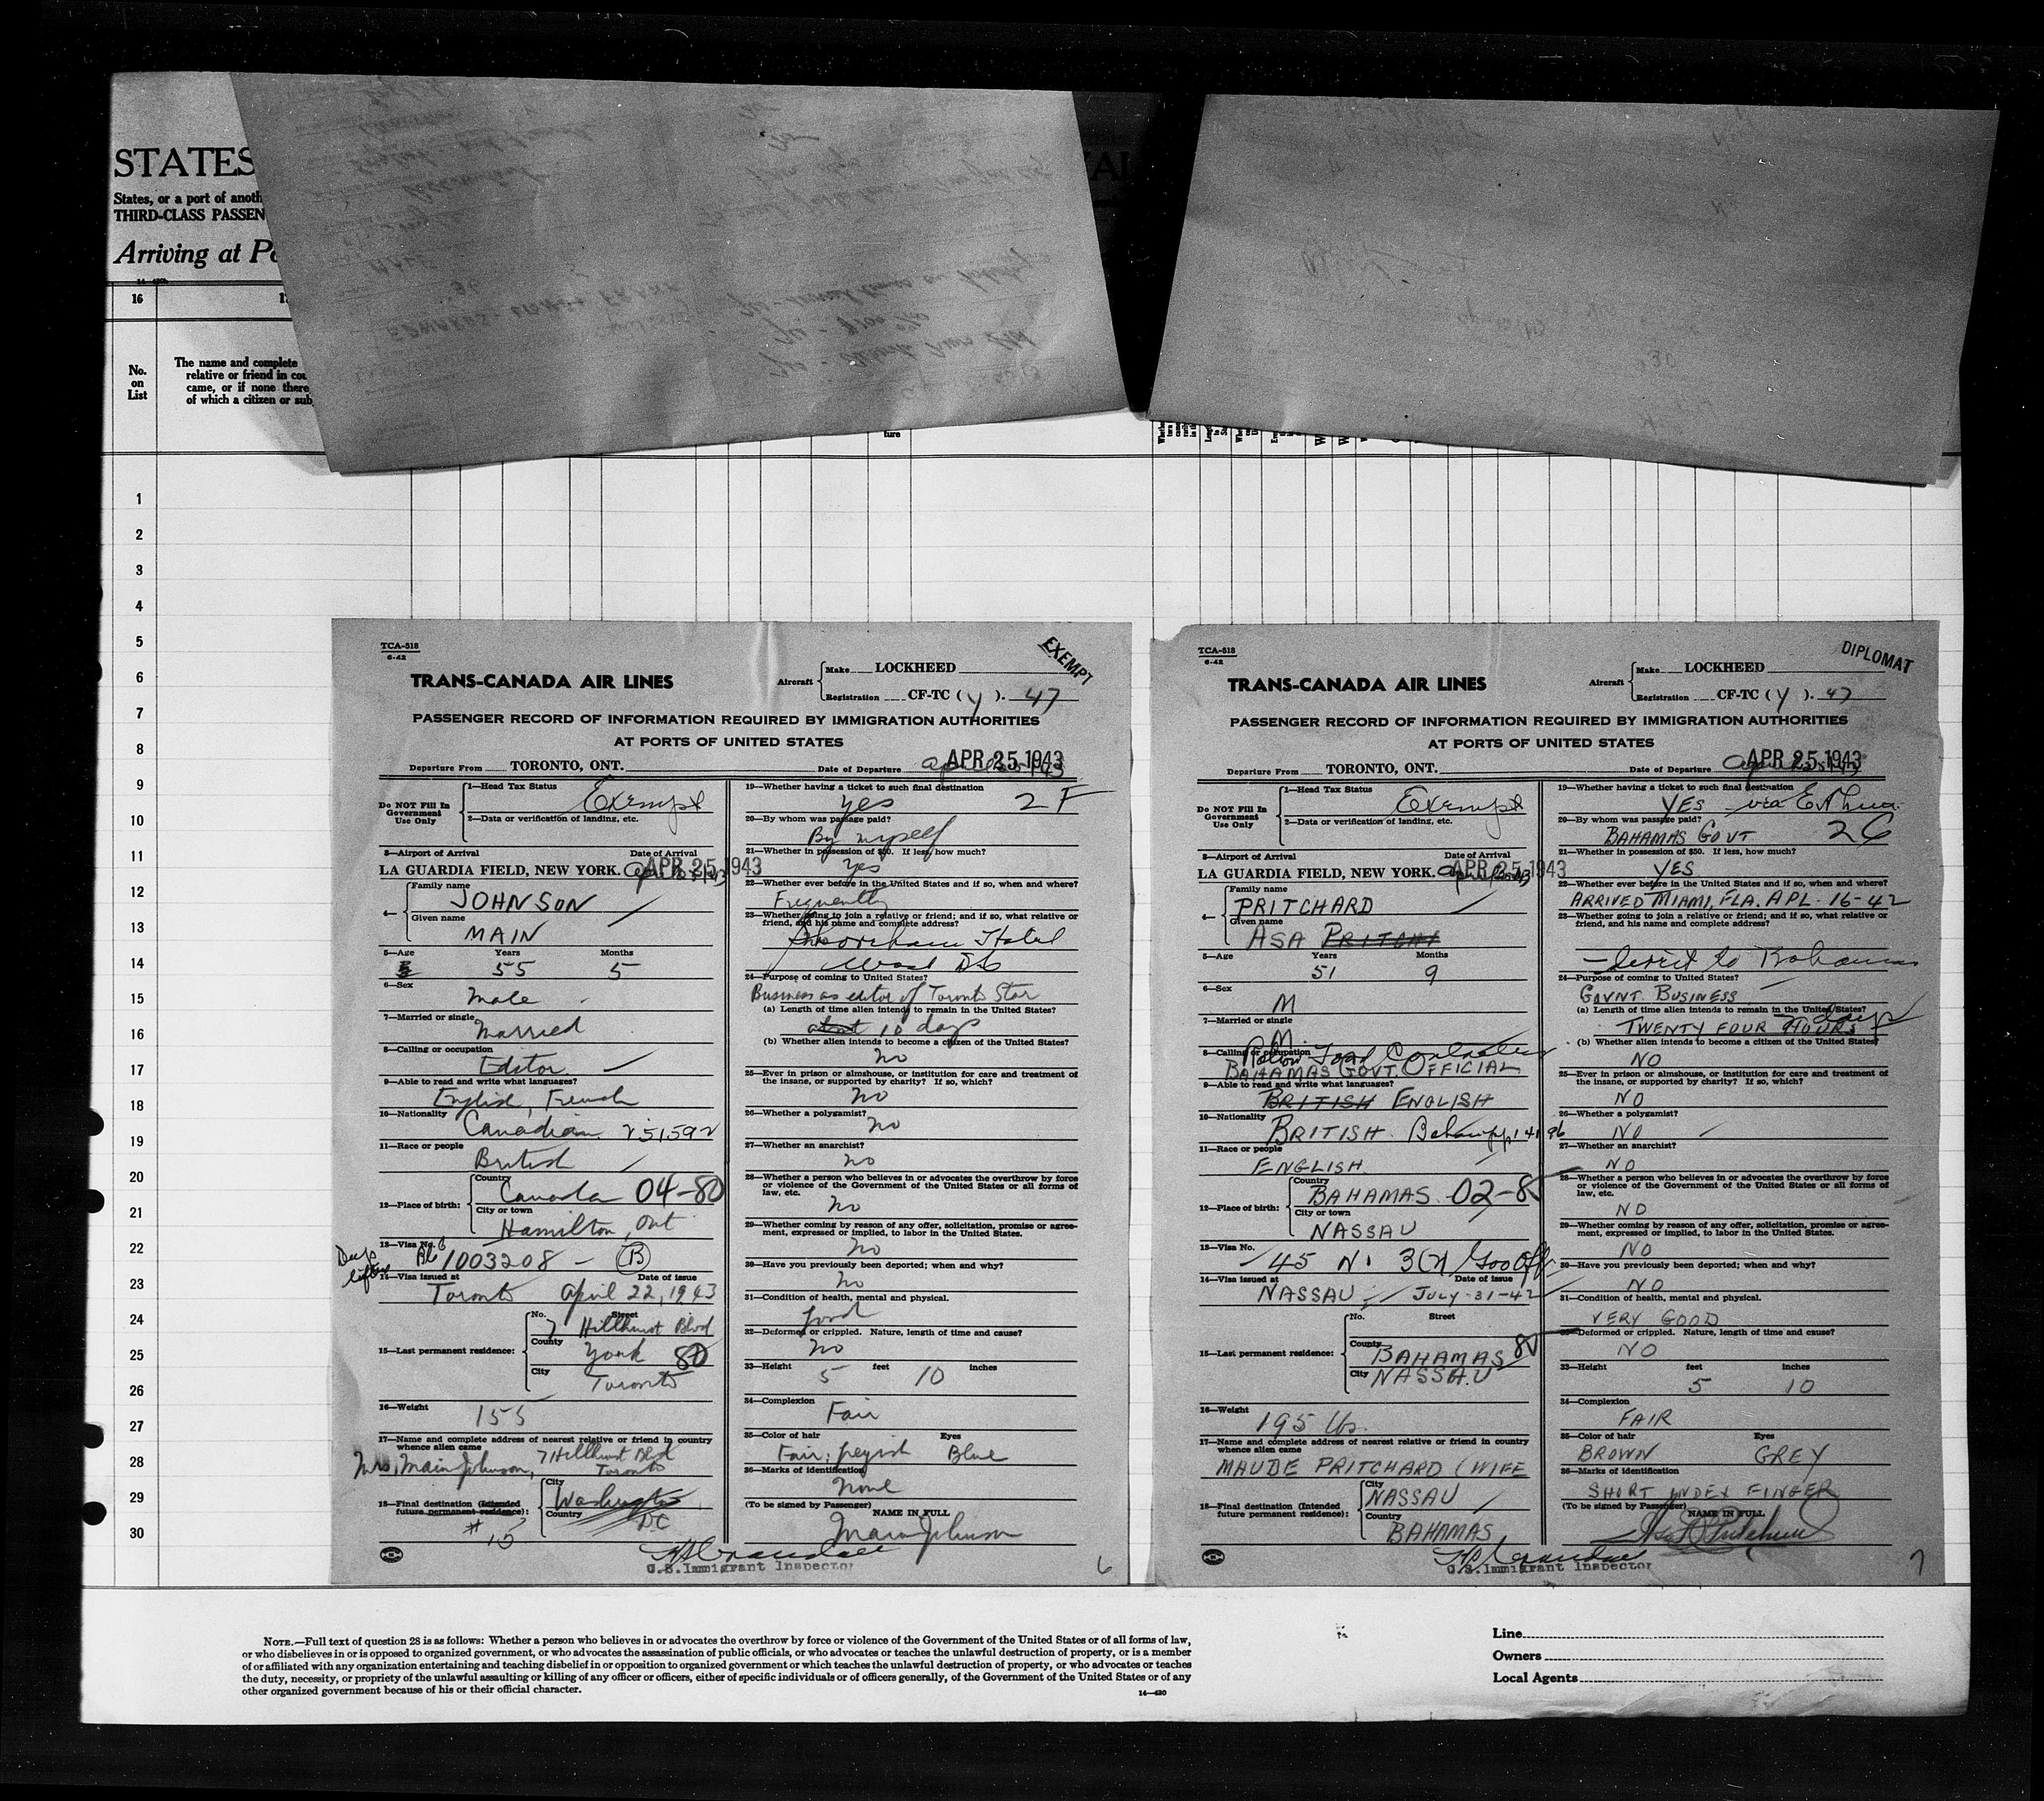 STATES
States, or a port of anoth
THIRD-CLASS PASSEN
Arriving at Po
16
No.
on
List
The name and complete
relative or friend in cou
came, or if none there
of which a citizen or sub
ture
1
2
3
4
5
6
7
8
9
10
11
12
13
14
15
16
17
18
19
20
21
22
23
24
25
26
27
28
29
30
TCA-518
6-42
EXEMPT
TRANS-CANADA AIR LINES
Aircraft
Make LOCKHEED
Registration CF-TC (Y). 47
PASSENGER RECORD OF INFORMATION REQUIRED BY IMMIGRATION AUTHORITIES
AT PORTS OF UNITED STATES
Departure From TORONTO, ONT. Date of Departure APR 25 1943
Do NOT Fill In
Government
Use Only
1—Head Tax Status
Exempt
2—Data or verification of landing, etc.
3—Airport of Arrival Date of Arrival
LA GUARDIA FIELD, NEW YORK. APR 25 1943
4—
Family name
JOHNSON
Given name
MAIN
5—Age Years Months
55 5
6—Sex
Male
7—Married or single
Married
8—Calling or occupation
Editor
9—Able to read and write what languages?
English, French
10—Nationality
Canadian 251592
11—Race or people
British
12—Place of birth:
Country
Canada 04-80
City or town
Hamilton, Ont
13—Visa No.
1003208 - B
14—Visa issued at Date of issue
Toronto April 22, 1943
15—Last permanent residence:
No. Street
7 Hillhurst Blvd
County
York 80
City
Toronto
16—Weight
155
17—Name and complete address of nearest relative or friend in country
whence alien came
7 Hillhurst Blvd
Mrs. Main Johnson, Toronto
18—Final destination (Intended
future permanent residence):
City
Washington
Country
DC
# 15
19—Whether having a ticket to such final destination
Yes 2 F
20—By whom was passage paid?
By myself
21—Whether in possession of $50. If less, how much?
Yes
22—Whether ever before in the United States and if so, when and where?
Frequently
23—Whether going to join a relative or friend; and if so, what relative or
friend, and his name and complete address?
Shoreham Hotel
Wash DC
24—Purpose of coming to United States?
Business as editor of Toronto Star
(a) Length of time alien intends to remain in the United States?
about 10 days
(b) Whether alien intends to become a citizen of the United States?
No
25—Ever in prison or almshouse, or institution for care and treatment of
the insane, or supported by charity? If so, which?
No
26—Whether a polygamist?
No
27—Whether an anarchist?
No
28—Whether a person who believes in or advocates the overthrow by force
or violence of the Government of the United States or all forms of
law, etc.
No
29—Whether coming by reason of any offer, solicitation, promise or agree-
ment, expressed or implied, to labor in the United States.
No
30—Have you previously been deported; when and why?
No
31—Condition of health, mental and physical.
Good
32—Deformed or crippled. Nature, length of time and cause?
No
33—Height feet inches
5 10
34—Complexion
Fair
35—Color of hair Eyes
Fair; greyish Blue
36—Marks of identification
None
(To be signed by Passenger) NAME IN FULL
Main Johnson
U.S. Immigrant Inspector
6
TCA-518
6-42
DIPLOMAT
TRANS-CANADA AIR LINES
Aircraft
Make LOCKHEED
Registration CF-TC (Y). 47
PASSENGER RECORD OF INFORMATION REQUIRED BY IMMIGRATION AUTHORITIES
AT PORTS OF UNITED STATES
Departure From TORONTO, ONT. Date of Departure APR 25 1943
Do NOT Fill In
Government
Use Only
1—Head Tax Status
Exempt
2—Data or verification of landing, etc.
3—Airport of Arrival Date of Arrival
LA GUARDIA FIELD, NEW YORK. APR 25 1943
4—
Family name
PRITCHARD
Given name
ASA
5—Age Years Months
51 9
6—Sex
M
7—Married or single
M.
8—Calling or occupation
Food Controller
BAHAMAS GOVT. OFFICIAL
9—Able to read and write what languages?
BRITISH ENGLISH
10—Nationality
BRITISH.
11—Race or people
ENGLISH
12—Place of birth:
Country
BAHAMAS. 02-8
City or town
NASSAU
13—Visa No.
45
14—Visa issued at Date of issue
NASSAU JULY-31-42
15—Last permanent residence:
No. Street
County
BAHAMAS 80
City
NASSAU
16—Weight
195 lbs.
17—Name and complete address of nearest relative or friend in country
whence alien came
MAUDE PRITCHARD (WIFE
18—Final destination (Intended
future permanent residence):
City
NASSAU
Country
BAHAMAS
19—Whether having a ticket to such final destination
YES via
20—By whom was passage paid?
BAHAMAS GOVT
21—Whether in possession of $50. If less, how much?
YES
22—Whether ever before in the United States and if so, when and where?
ARRIVED MIAMI, FLA. APL. 16-42
23—Whether going to join a relative or friend; and if so, what relative or
friend, and his name and complete address?
to Bahamas
24—Purpose of coming to United States?
GOVNT. BUSINESS
(a) Length of time alien intends to remain in the United States?
TWENTY FOUR HOURS days
(b) Whether alien intends to become a citizen of the United States?
NO
25—Ever in prison or almshouse, or institution for care and treatment of
the insane, or supported by charity? If so, which?
NO
26—Whether a polygamist?
NO
27—Whether an anarchist?
NO
28—Whether a person who believes in or advocates the overthrow by force
or violence of the Government of the United States or all forms of
law, etc.
NO
29—Whether coming by reason of any offer, solicitation, promise or agree-
ment, expressed or implied, to labor in the United States.
NO
30—Have you previously been deported; when and why?
NO
31—Condition of health, mental and physical.
VERY GOOD
32—Deformed or crippled. Nature, length of time and cause?
NO
33—Height feet inches
5 10
34—Complexion
FAIR
35—Color of hair Eyes
BROWN GREY
36—Marks of identification
SHORT INDEX FINGER
(To be signed by Passenger) NAME IN FULL
U.S. Immigrant Inspector
7
NOTE.—Full text of question 28 is as follows: Whether a person who believes in or advocates the overthrow by force or violence of the Government of the United States or of all forms of law,
or who disbelieves in or is opposed to organized government, or who advocates the assassination of public officials, or who advocates or teaches the unlawful destruction of property, or is a member
of or affiliated with any organization entertaining and teaching disbelief in or opposition to organized government or which teaches the unlawful destruction of property, or who advocates or teaches
the duty, necessity, or propriety of the unlawful assaulting or killing of any officer or officers, either of specific individuals or of officers generally, of the Government of the United States or of any
other organized government because of his or their official character.
14—420
Line
Owners
Local Agents